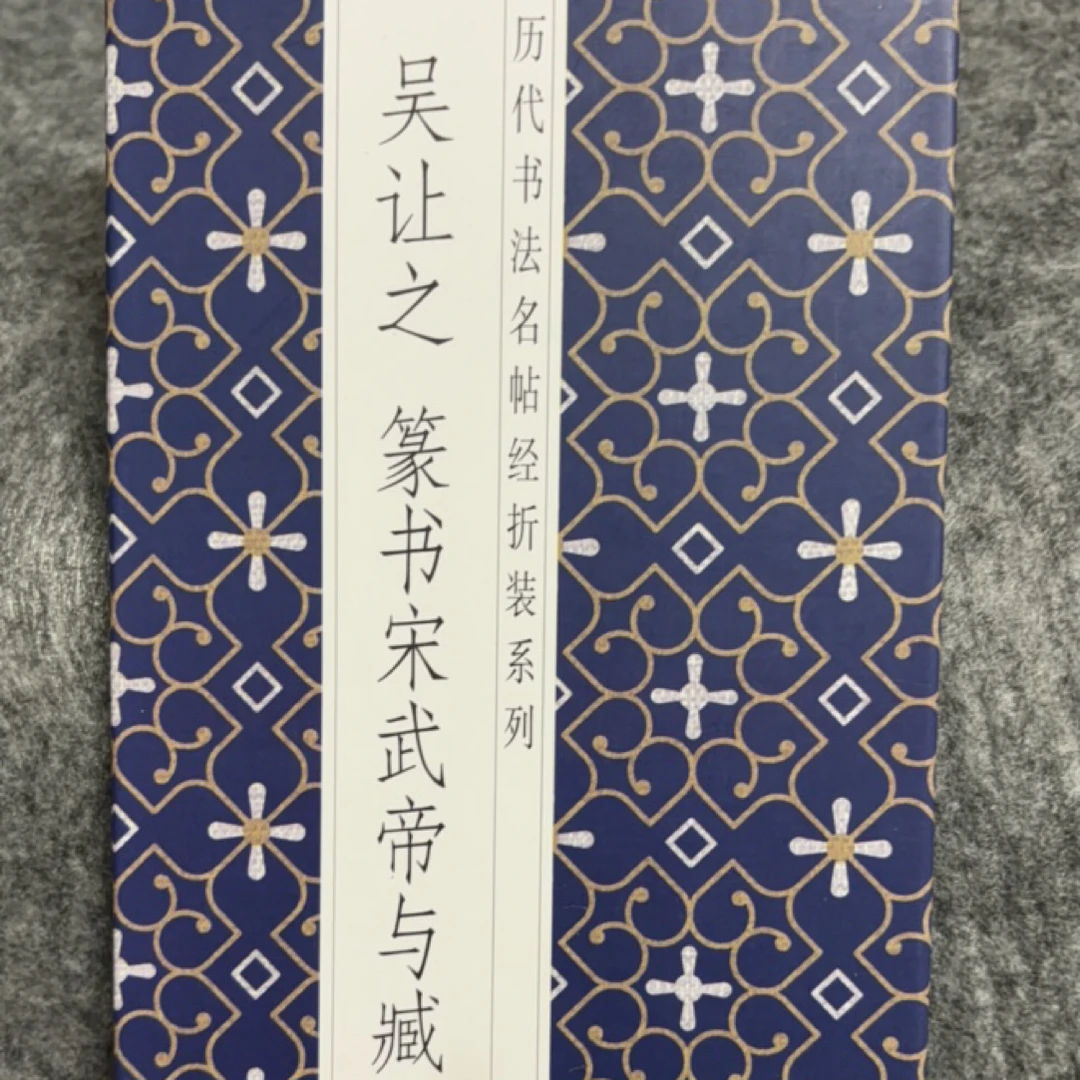 历代书法名帖经折装系列
吴让之 篆书宋武帝与臧